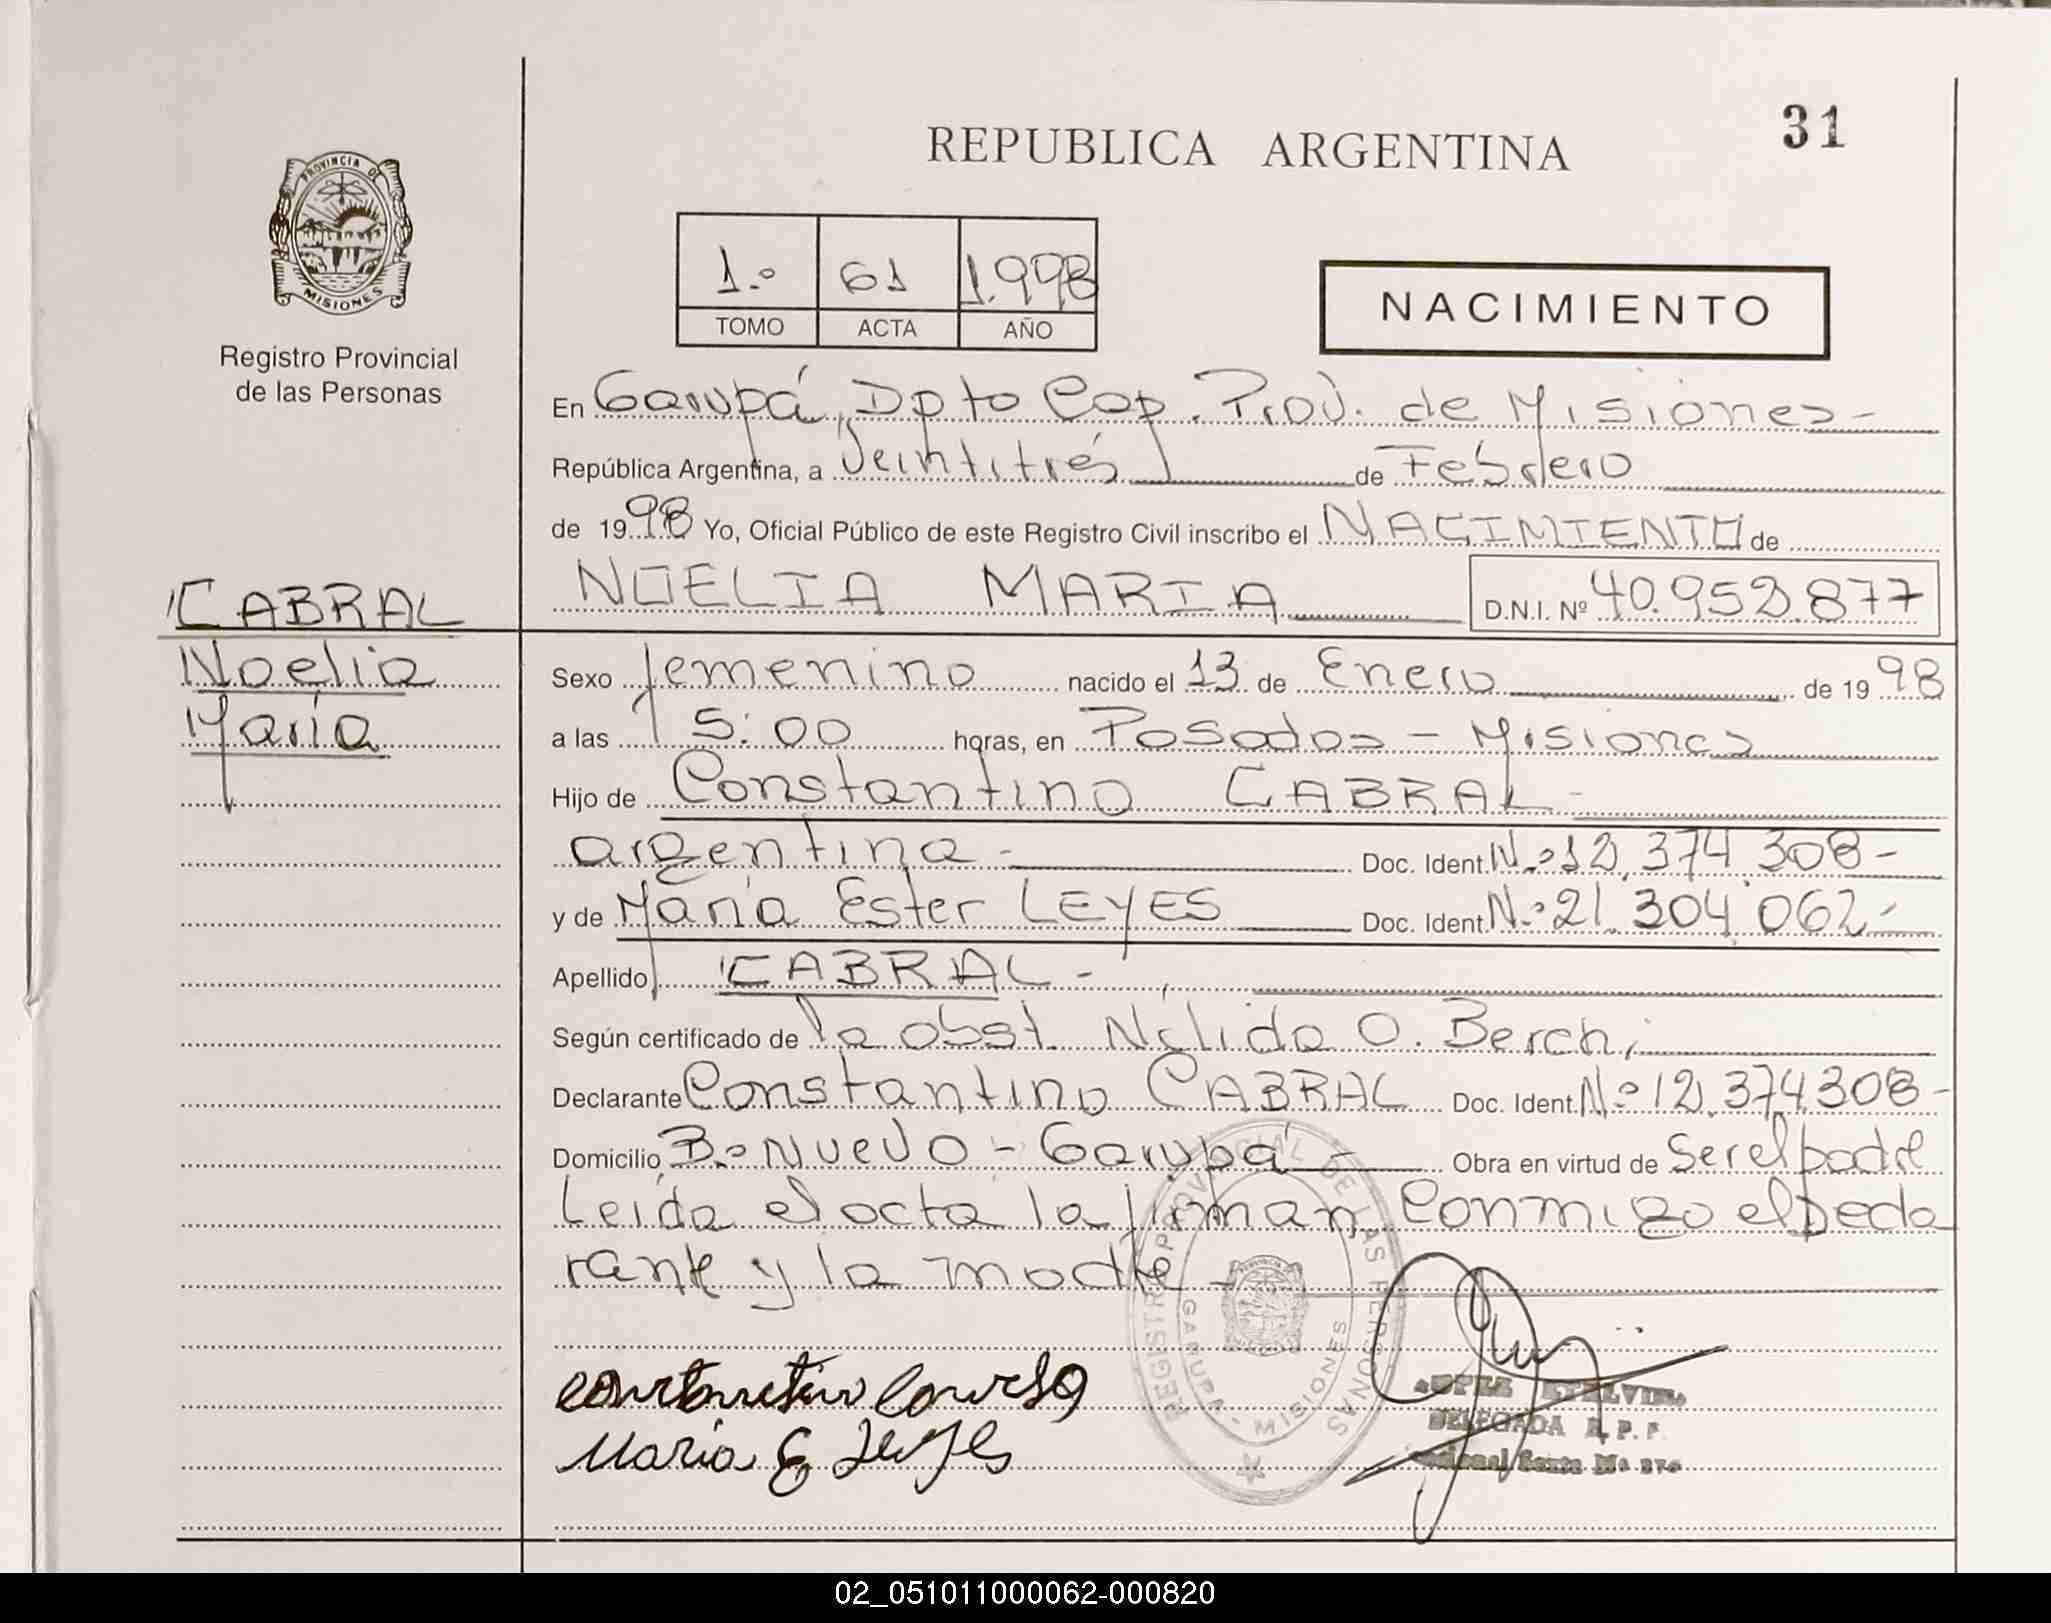 31
REPUBLICA ARGENTINA
PROVINCIA DE
MISIONES
Registro Provincial
de las Personas
1.º 61 1.998
TOMO ACTA AÑO
NACIMIENTO
En Garupá, Dpto Cap. Prov. de Misiones-
República Argentina, a Veintitrés de Febrero
de 1998 Yo, Oficial Público de este Registro Civil inscribo el NACIMIENTO de
NOELIA MARIA D.N.I. Nº 40.952.877
CABRAL
Noelia
María
Sexo femenino nacido el 13 de Enero de 1998
a las 15:00 horas, en Posadas - Misiones
Hijo de Constantino CABRAL-
argentina- Doc. Ident. N.º 12.374.308-
y de María Ester LEYES Doc. Ident. N.º 21.304.062-
Apellido CABRAL-
Según certificado de la obst. Nélida O. Berchi
Declarante Constantino CABRAL Doc. Ident. Nº 12.374.308-
Domicilio B.º Nuevo - Garupá - Obra en virtud de Ser el padre
Leída el acta la firman, Conmigo el Decla
rante y la madre-
REGISTRO PROVINCIAL DE LAS PERSONAS
GARUPA - MISIONES
Maria E Leyes
DELEGADA R. P. P.
02_051011000062-000820